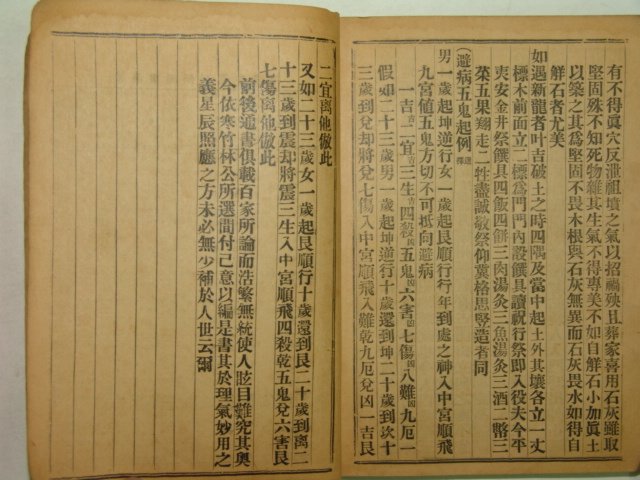 有不得眞穴反泄祖墳之氣以招禍殃且葬家喜用石灰雖取
堅固殊不知死物雖其生氣不得專美不如自鮮石小加眞土
以築之其爲堅固不畏木根與石灰無異而石灰畏水如得自
鮮石者尤美
如遇新龍者叶吉破土之時四隅及當中起土外其壤各立一丈
標木前面立二標爲門門內設饌具讀祝行祭即入役夫令平
夷安金井祭饌具四飯四餠三肉湯灸三魚湯灸三酒二幣三
榮五果翔走二牲盡誠敬祭仰冀格思竪造者同
(避病五鬼起例)
男一歲起坤逆行女一歲起艮順行行年到處之神入中宮順飛
九宮値五鬼方切不可抵向避病
一吉吉二宜吉三生吉四殺凶五鬼凶六害凶七傷凶八難凶九厄一
假如二十三歲男一歲起坤逆行十歲還到坤二十歲到坎十
三歲到兌却將兌七傷入中宮順飛入難乾九厄兌凶一吉艮
二宜离他倣此
又如二十三歲女一歲起艮順行十歲還到艮二十歲到离二
十三歲到震却將震三生入中宮順飛四殺乾五鬼兌六害艮
七傷离他倣此
前後通書俱載百家所論而浩繁無統使人眩目難究其奧
今依寒竹林公所選間付己意以編是書其於理氣妙用之
義星辰照應之方未必無少補於人世云爾